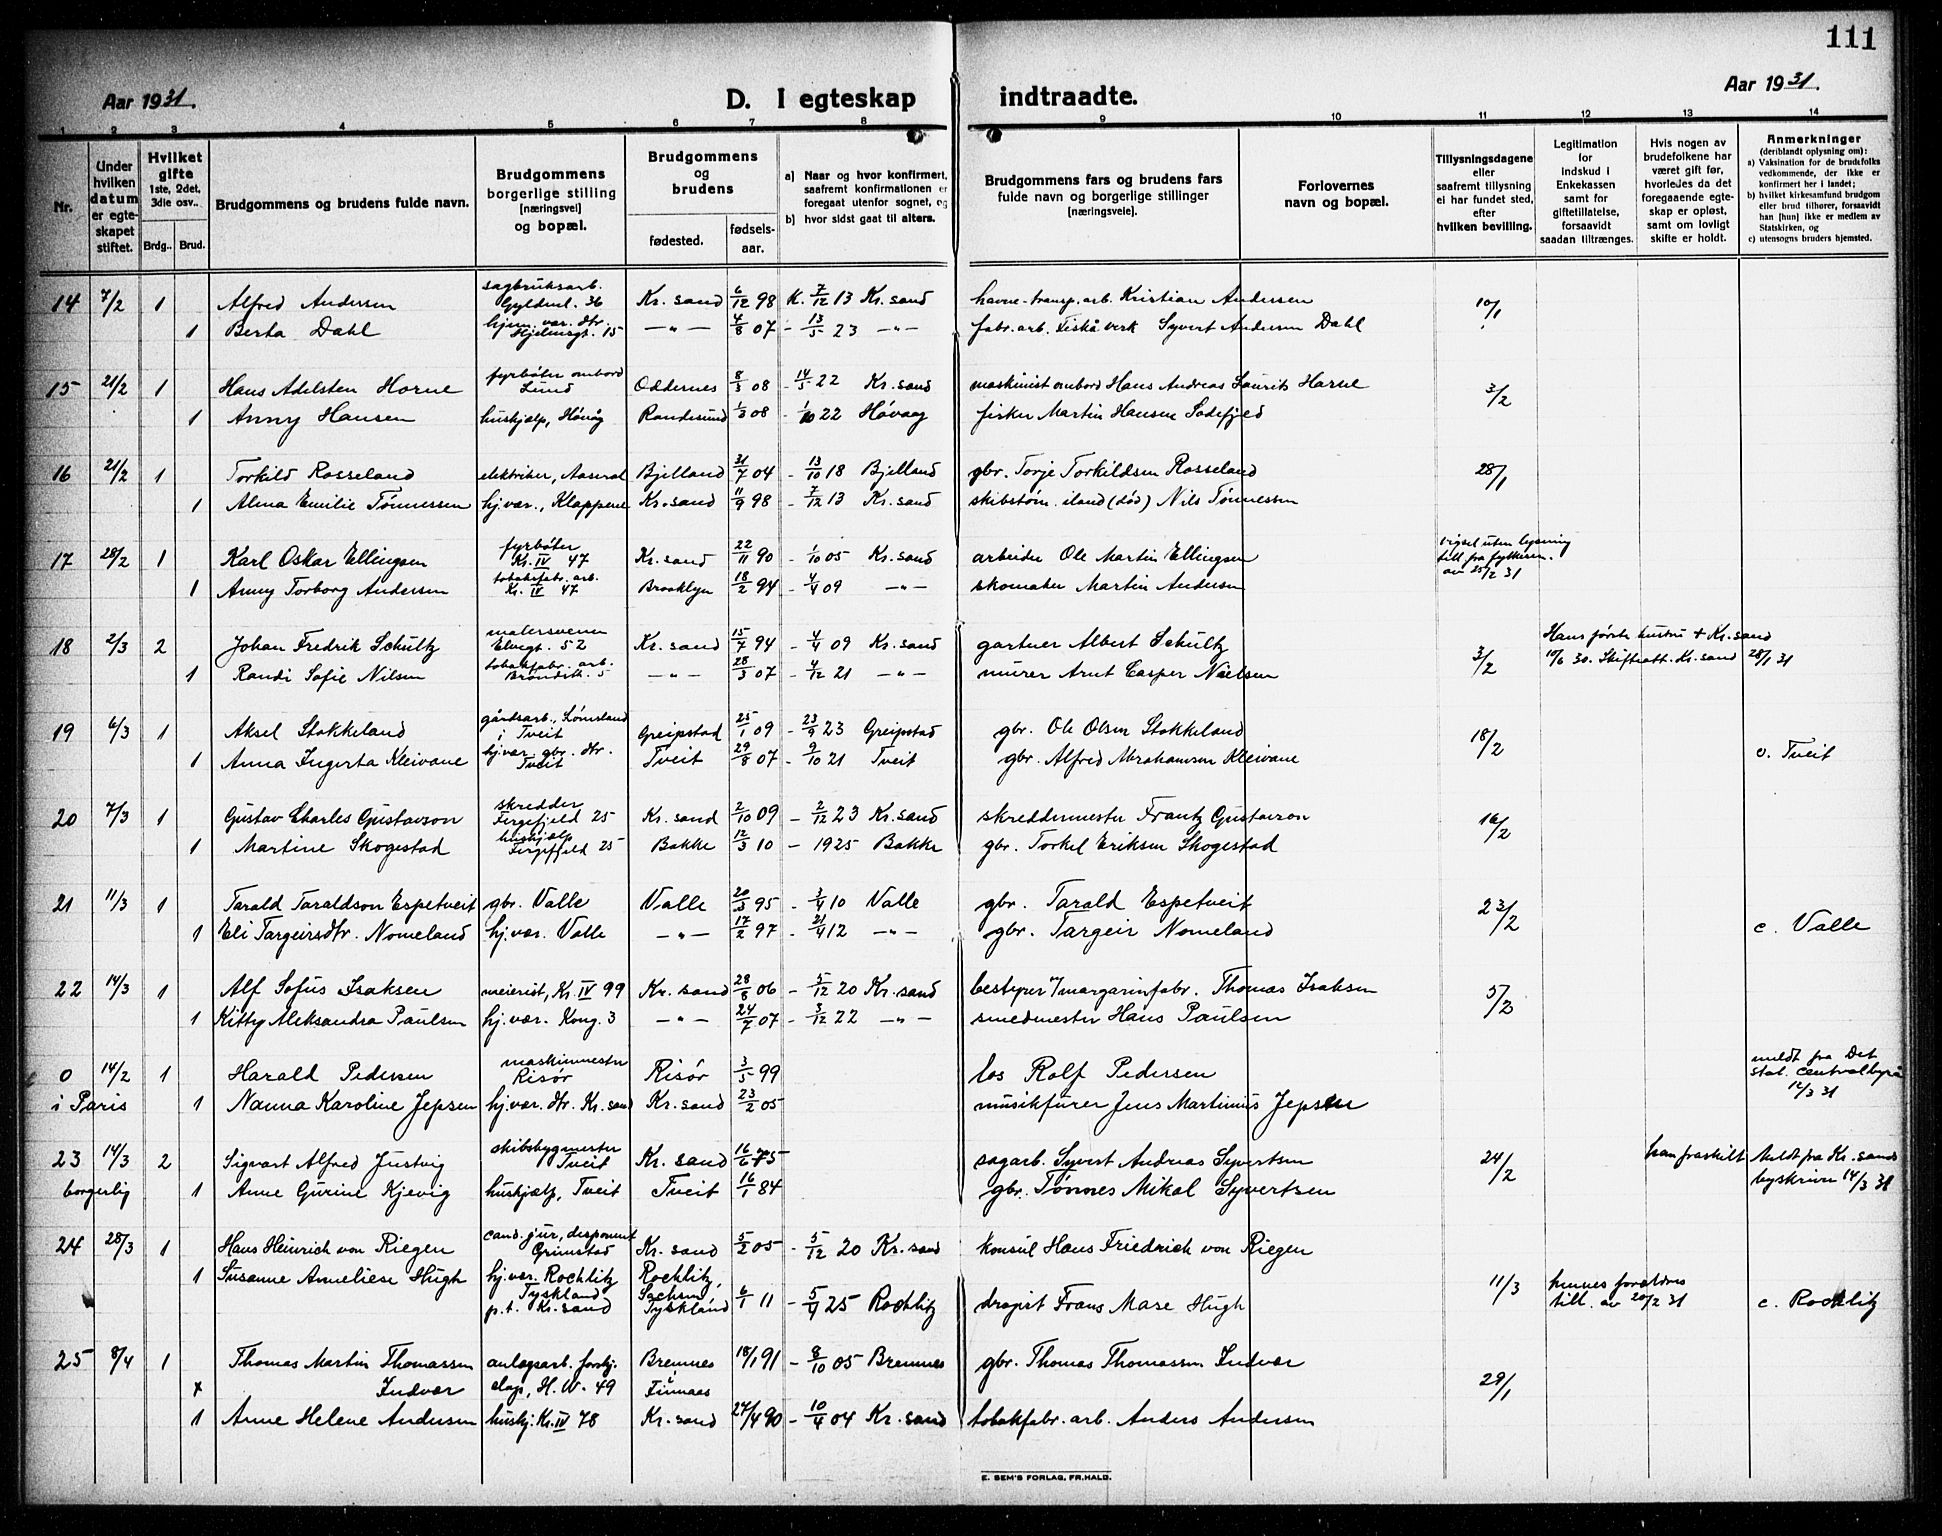 111
Aar 1931.
D. I egteskap indtraadte.
Aar 1931.
1 2 3 4 5 6 7 8 9 10 11 12 13 14
Nr.
Under hvilken datum er egteskapet stiftet.
Hvilket gifte 1ste, 2det, 3die osv..
Brdg.. Brud.
Brudgommens og brudens fulde navn.
Brudgommens borgerlige stilling [næringsvei] og bopæl.
Brudgommens og brudens
fødested. fødsels-aar.
a) Naar og hvor konfirmert, saafremt konfirmationen er foregaat utenfor sognet, og
b) hvor sidst gaat til alters.
Brudgommens fars og brudens fars fulde navn og borgerlige stillinger [næringsveie].
Forlovernes navn og bopæl.
Tillysningsdagene eller saafremt tillysning ei har fundet sted, efter hvilken bevilling.
Legitimation for Indskud i Enkekassen samt for giftetillatelse, forsaavidt saadan tiltrænges.
Hvis nogen av brudefolkene har været gift før, hvorledes da det foregaaende egteskap er opløst, samt om lovligt skifte er holdt.
Anmerkninger (deriblandt oplysning om):
a) Vaksination for de brudefolks vedkommende, der ikke er konfirmert her i landet;
b) hvilket kirkesamfund brudgom eller brud tilhører, forsaavidt han [hun] ikke er medlem av Statskirken, og
c) utensogns bruders hjemsted.
14 7/2 1 Alfred Andersen sagbruksarb. Gyldenl. 36 Kr. sand 6/12 98 K. 7/12 13 Kr. sand havne-transp. arb. Kristian Andersen 10/1
1 Berta Dahl hjem. vær. dtr. Hjelmsgt. 15 —"— 4/8 07 - 13/5 23 —"— fabr. arb. Fiskå verk Syvert Andersen Dahl
15 21/2 1 Hans Adelsten Horne fyrbøter ombord Lund Oddernes 8/3 08 - 14/5 22 Kr. sand maskinist ombord Hans Andreas Laurits Horne 3/2
1 Anny Hansen huskjælp, Høvåg Randesund 1/3 08 - 1/10 22 Høvaag fisker Martin Hansen
16 21/2 1 Torkild Rosseland elektriker, Aaseral Bjelland 31/7 04 - 13/10 18 Bjelland gbr. Torje Torkildsen Rosseland 28/1
1 Alma Emilie Tønnessen hj. vær., Klappene Kr. sand 11/9 98 - 7/12 13 Kr. sand skibstøm. iland (død) Nils Tønnessen
17 28/2 1 Karl Oskar Ellingsen fyrbøter Kr. IV 47 Kr. sand 22/11 90 - 1/10 05 Kr. sand arbeider Ole Martin Ellingsen vigsel uten lysning till. fra fylkesm. av 25/2 31
1 Anny Torborg Andersen tobaksfabr. arb. Kr. IV 47 Brooklyn 18/2 94 - 4/4 09 —"— skomaker Martin Andersen
18 2/3 2 Johan Fredrik Schultz malersvenn Elvegt. 52 Kr. sand 15/7 94 - 4/4 09 Kr. sand gartner Albert Schultz 3/2 Hans første hustru + Kr. sand
1 Randi Sofie Nilsen tobakfabr. arb. Brøndstr. 5 —"— 28/3 07 - 4/12 21 —"— murer Arnt Casper Nielsen 10/6 30. Skifteatt. Kr. sand 28/1 31
19 6/3 1 Aksel Stokkeland gårdsarb., Lømsland i Tveit Greipstad 25/1 09 - 23/9 23 Greipstad gbr. Ole Olsen Stokkeland 18/2
1 Anna Ingerta Kleivane hj. vær. gbr. dtr. Tveit Tveit 29/8 07 - 9/10 21 Tveit gbr. Alfred Abrahamsen Kleivane c. Tveit
20 7/3 1 Gustav Charles Gustavson skredder Fergefjeld 25 Kr. sand 2/10 09 - 2/12 23 Kr. sand skreddermester Frantz Gustavson 16/2
1 Martine Skogestad huskjælp Fergefjeld 25 Bakke 12/3 10 - 1925 Bakke gbr. Torkel Eriksen Skogestad
21 11/3 1 Tarald Taraldson Espetveit gbr. Valle Valle 20/3 95 - 3/4 10 Valle gbr. Tarald Espetveit 23/2
1 Eli Targeirsdtr. Nomeland hj. vær. Valle —"— 17/2 97 - 21/4 12 —"— gbr. Targeir Nomeland c. Valle
22 14/3 1 Alf Sofus Isaksen meierist, Kr. IV 99 Kr. sand 28/8 06 - 5/12 20 Kr. sand bestyrer v/margarinfabr. Thomas Isaksen 5/2
1 Kitty Aleksandra Paulsen hj. vær. Kong. 3 —"— 24/7 07 - 3/12 22 —"— smedmester Hans Paulsen
0 14/2 1 Harald Pedersen maskinmester Risør Risør 3/5 99 los Rolf Pedersen meldt fra Det stat. centralbyrå 12/3 31
i Paris 1 Nanna Karoline Jepsen hj. vær. dtr. Kr. sand Kr. sand 23/2 05 musikfører Jens Martinius Jepsen
23 14/3 2 Sigvart Alfred Justvig skibsbygmester Tveit Kr. sand 16/6 75 sagarb. Syvert Andreas Syvertsen 24/2 han fraskilt Meldt fra Kr. sands
borgerlig 1 Anne Gurine Kjevig huskjælp, Tveit Tveit 16/1 84 gbr. Tønnes Mikal Syvertsen byskriver 14/3 31
24 28/3 1 Hans Heinrich von Riegen cand. jur, disponent Grimstad Kr. sand 5/2 05 - 5/12 20 Kr. sand konsul Hans Friedrich von Riegen
1 Susanne Anneliese Hugh hj. vær. Rochlitz Tyskland p.t. Kr. sand Rochlitz, Sachsen Tyskland 6/1 11 - 5/4 25 Rochlitz drogist Frans Mase Hugh 11/3 hennes forældres till. av 20/2 31 c. Rochlitz
25 8/4 1 Thomas Martin Thomassen Indvær anlægsarb. forskj. H. W. 49 Bremnes i Finnaas 18/1 91 - 8/10 05 Bremnes gbr. Thomas Thomassen Indvær 29/1
x
1 Anne Helene Andersen huskj. Kr. IV 78 Kr. sand 27/4 90 - 10/4 04 Kr. sand tobakfabr. arb. Anders Andersen
E. SEM'S FORLAG, FR.HALD.